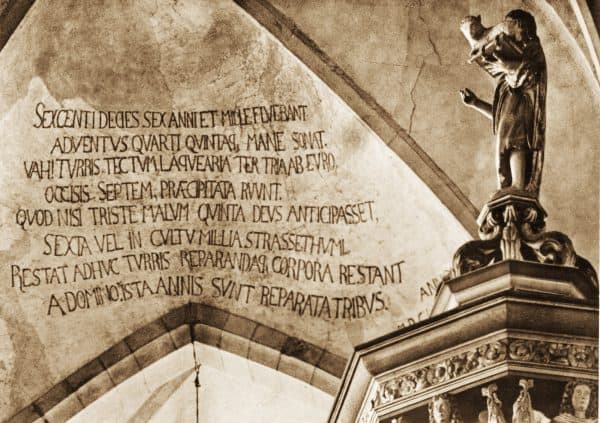 SEXCENTI DECIES SEX ANNI ET MILLE FLVEBANT
ADVENTVS QVARTI QVINTAQ, MANE SONAT.
VAH! TVRRIS. TECTVM LAQVEARIA TER TRIA AB EVRO,
OCCISIS SEPTEM, PRÆCIPITATA RVVNT.
QVOD NISI TRISTE MALVM QVINTA DEVS ANTICIPASSET,
SEXTA VEL IN CVLTV MILLIA STRASSET HVMI.
RESTAT ADHVC TVRRIS REPARANDAQ, CORPORA RESTANT
A DOMINO: ISTA ANNIS SVNT REPARATA TRIBVS.